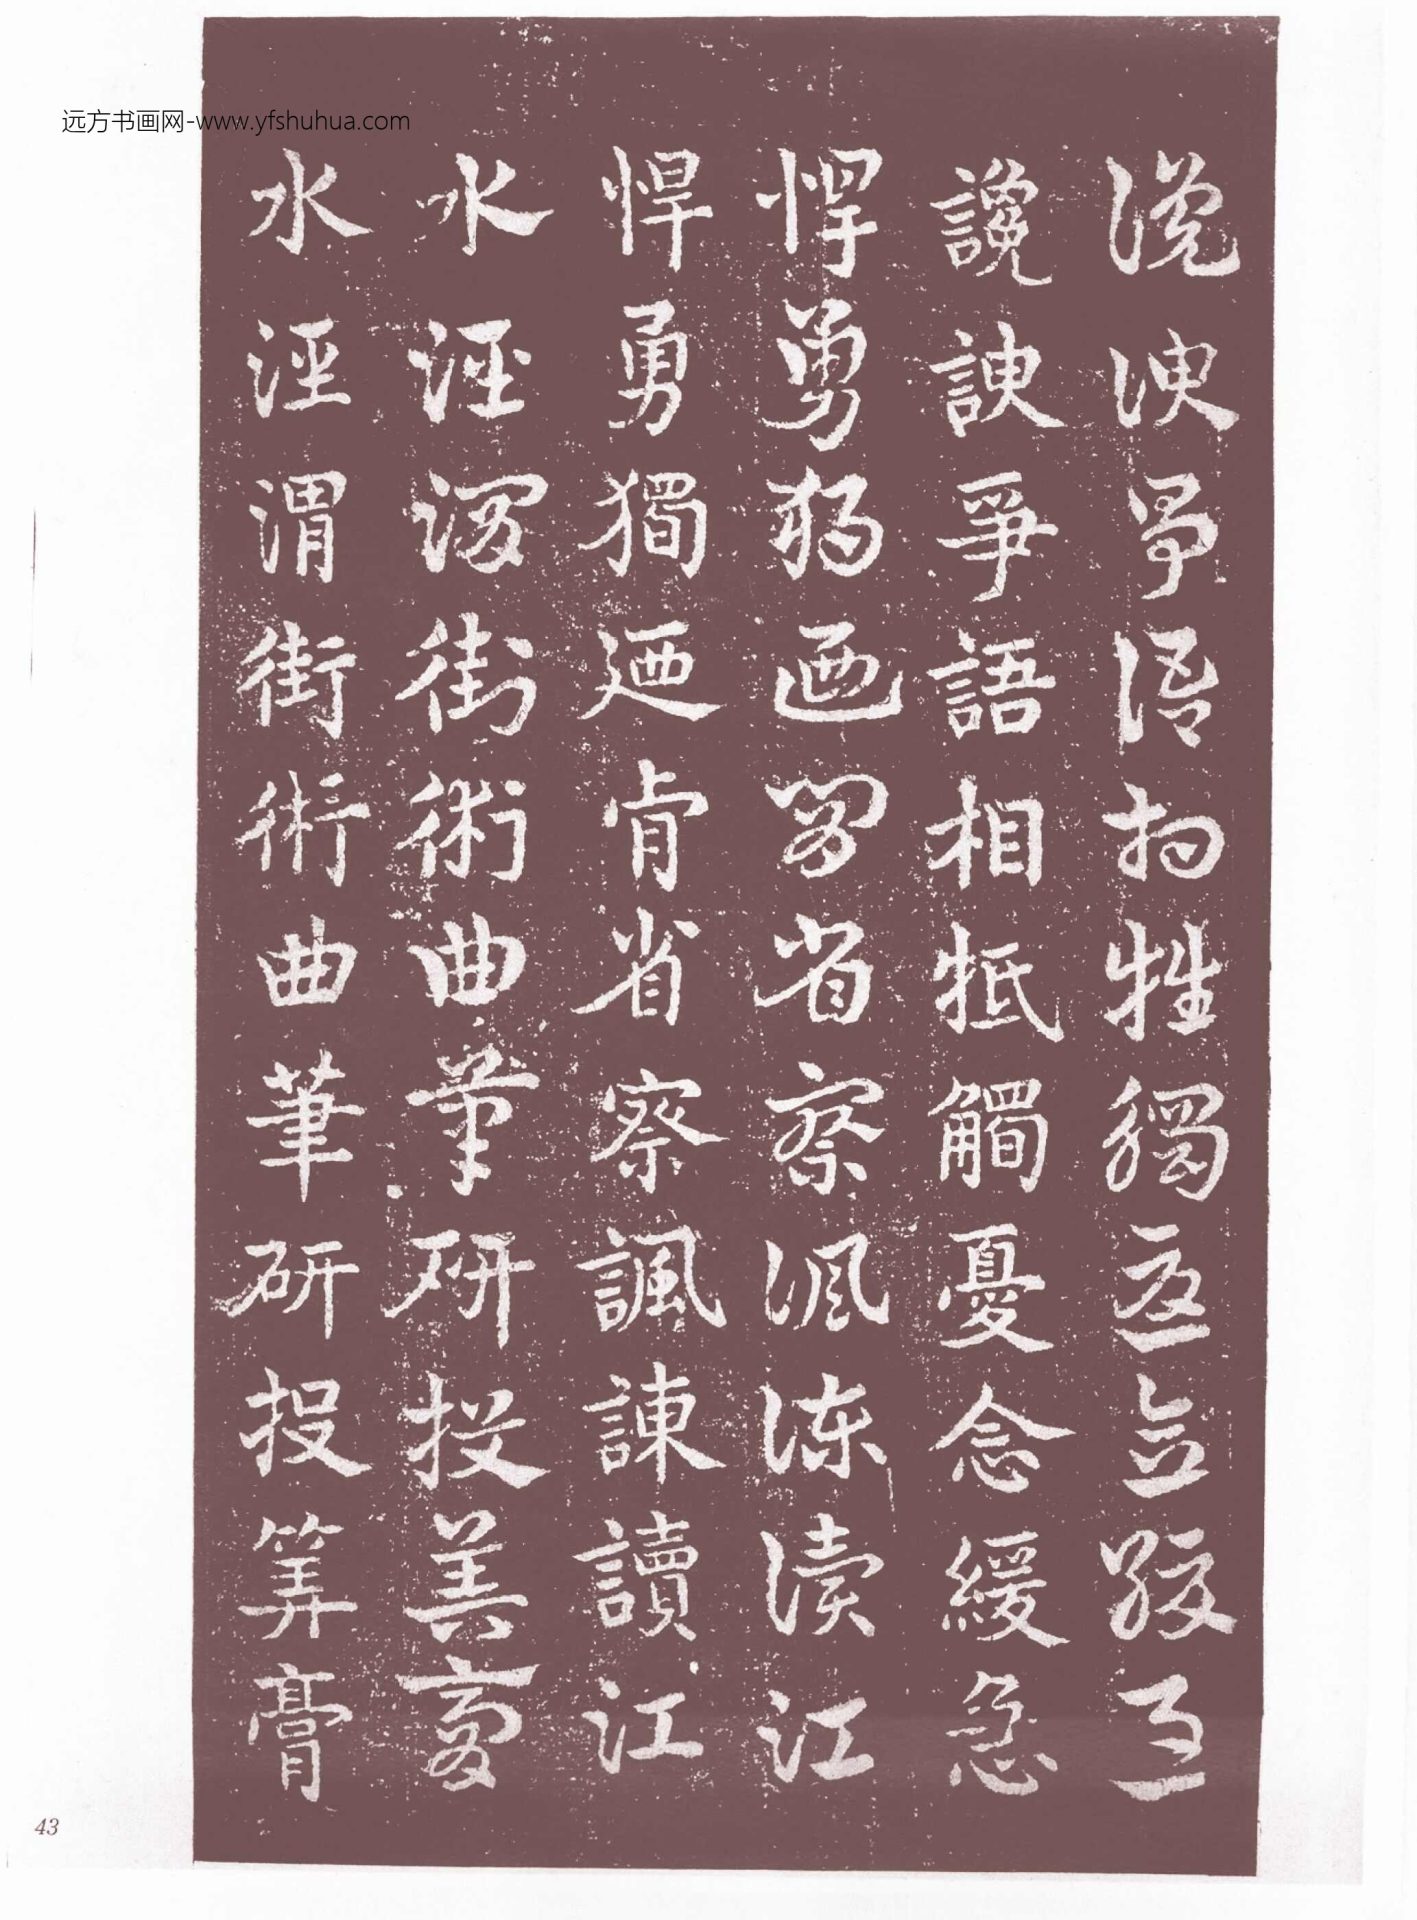 远方书画网-www.yfshuhua.com
讒諛爭語相牴觸憂念緩急
讒諛爭語相牴觸憂念緩急
悍勇獨迺肯省察諷諫讀江
悍勇獨廼肯省察諷諫讀江
水涇渭街術曲筆研投筭膏
水涇渭街術曲筆研投筭膏
43